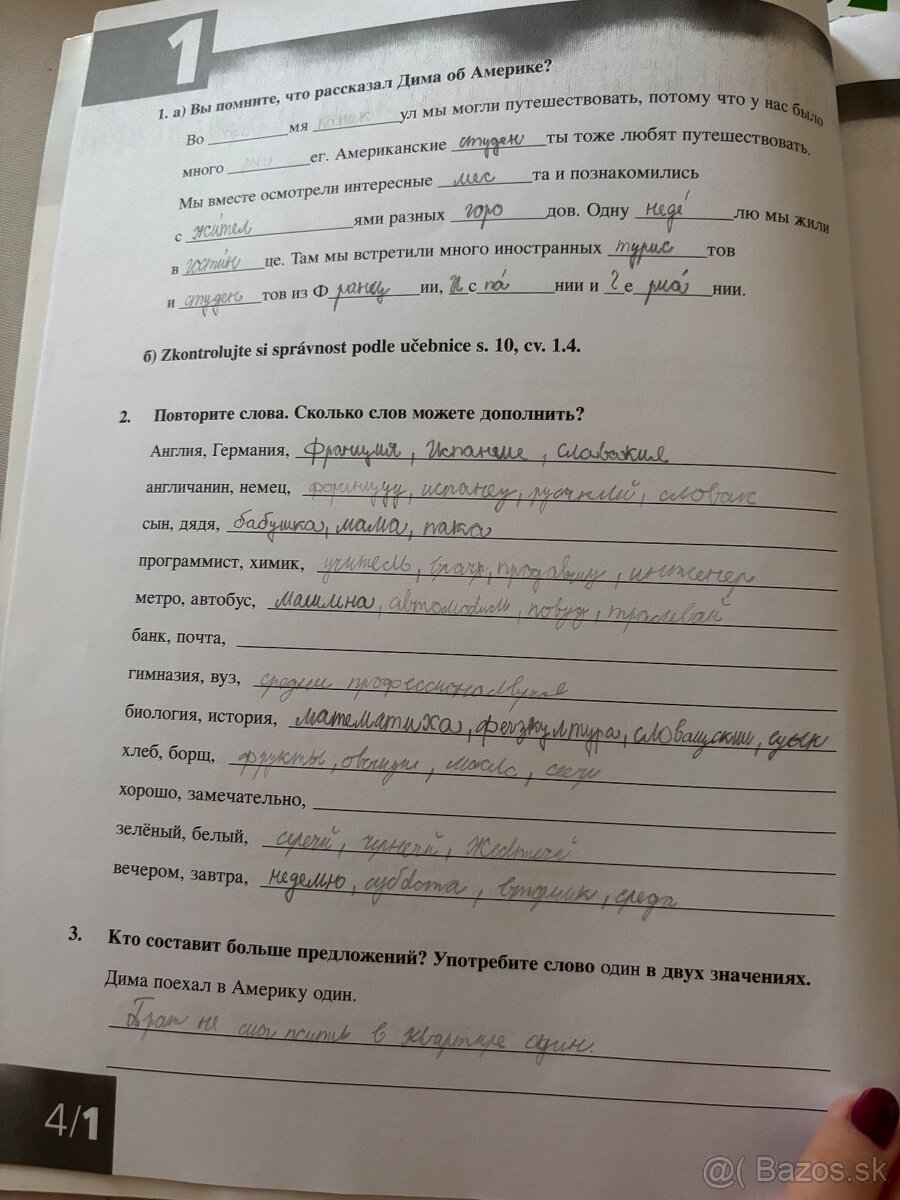 1
1. а) Вы помните, что рассказал Дима об Америке?
Во ___ мя каник ул мы могли путешествовать, потому что у нас было
много ___ ег. Американские студен ты тоже любят путешествовать.
Мы вместе осмотрели интересные мес та и познакомились
с жител ями разных горо дов. Одну неде́ лю мы жили
в гости́н це. Там мы встретили много иностранных турис тов
и студен тов из Ф ранц ии, И с па́ нии и Г е рма́ нии.
б) Zkontrolujte si správnost podle učebnice s. 10, cv. 1.4.
2. Повторите слова. Сколько слов можете дополнить?
Англия, Германия, Франция, Испание, словакия
англичанин, немец, испанец, словак
сын, дядя, бабушка, мама, папа
программист, химик, учитель, врач, инженер
метро, автобус, автомобиль, трамвай
банк, почта,
гимназия, вуз, средние
биология, история, математика, физкултура,
хлеб, борщ, фрукты, масло,
хорошо, замечательно,
зелёный, белый,
вечером, завтра, суббота, вторник, среда
3. Кто составит больше предложений? Употребите слово один в двух значениях.
Дима поехал в Америку один.
Брат не смог жить в квартире один.
4/1
@( Bazos.sk